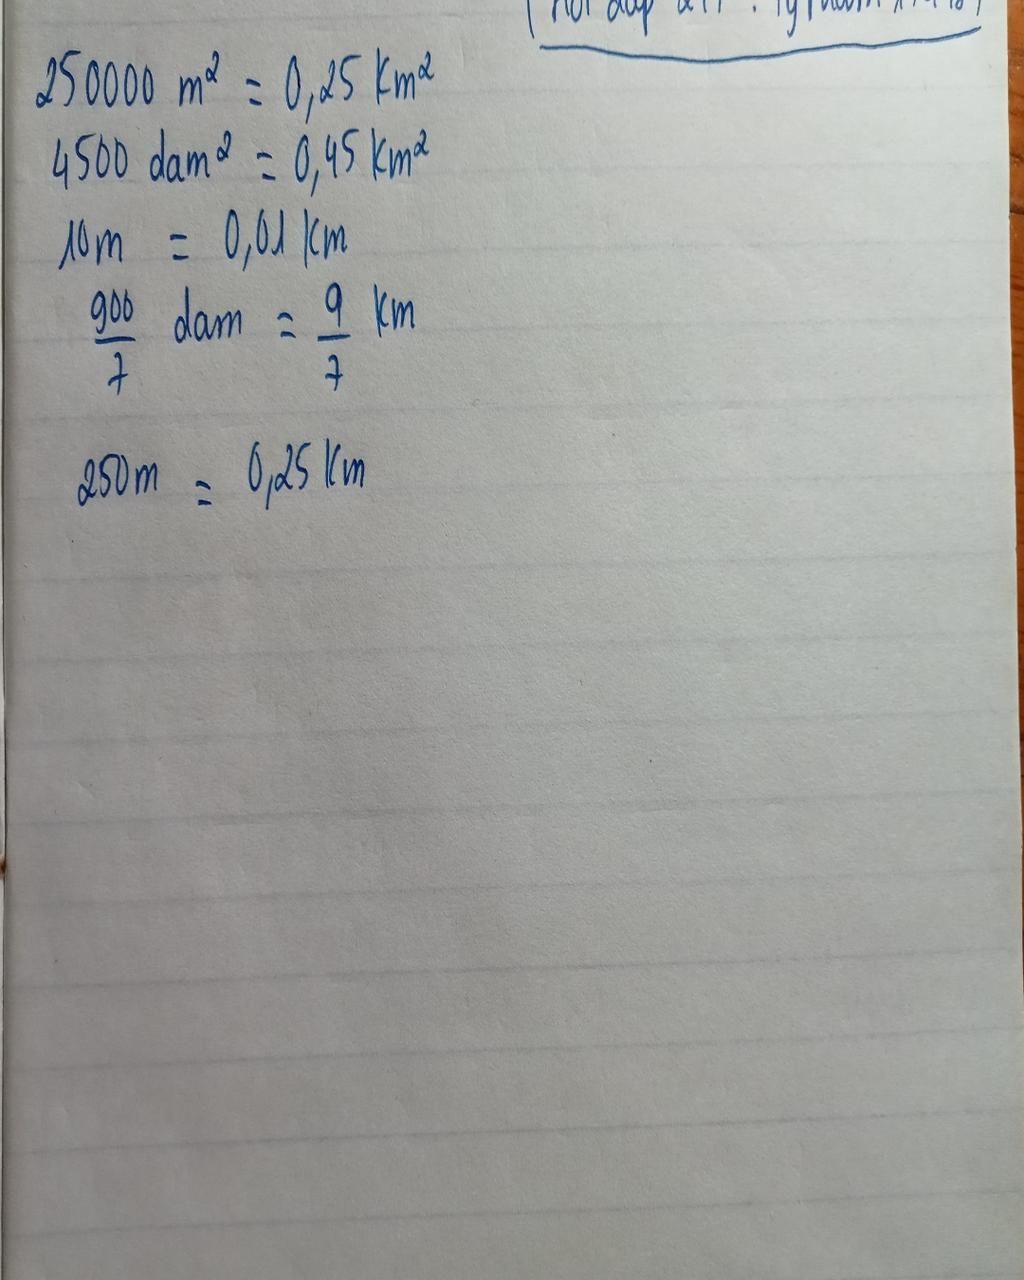 250000 m² = 0,25 Km²
4500 dam² = 0,45 Km²
10m = 0,01 Km
900/7 dam = 9/7 Km
250m = 0,25 Km